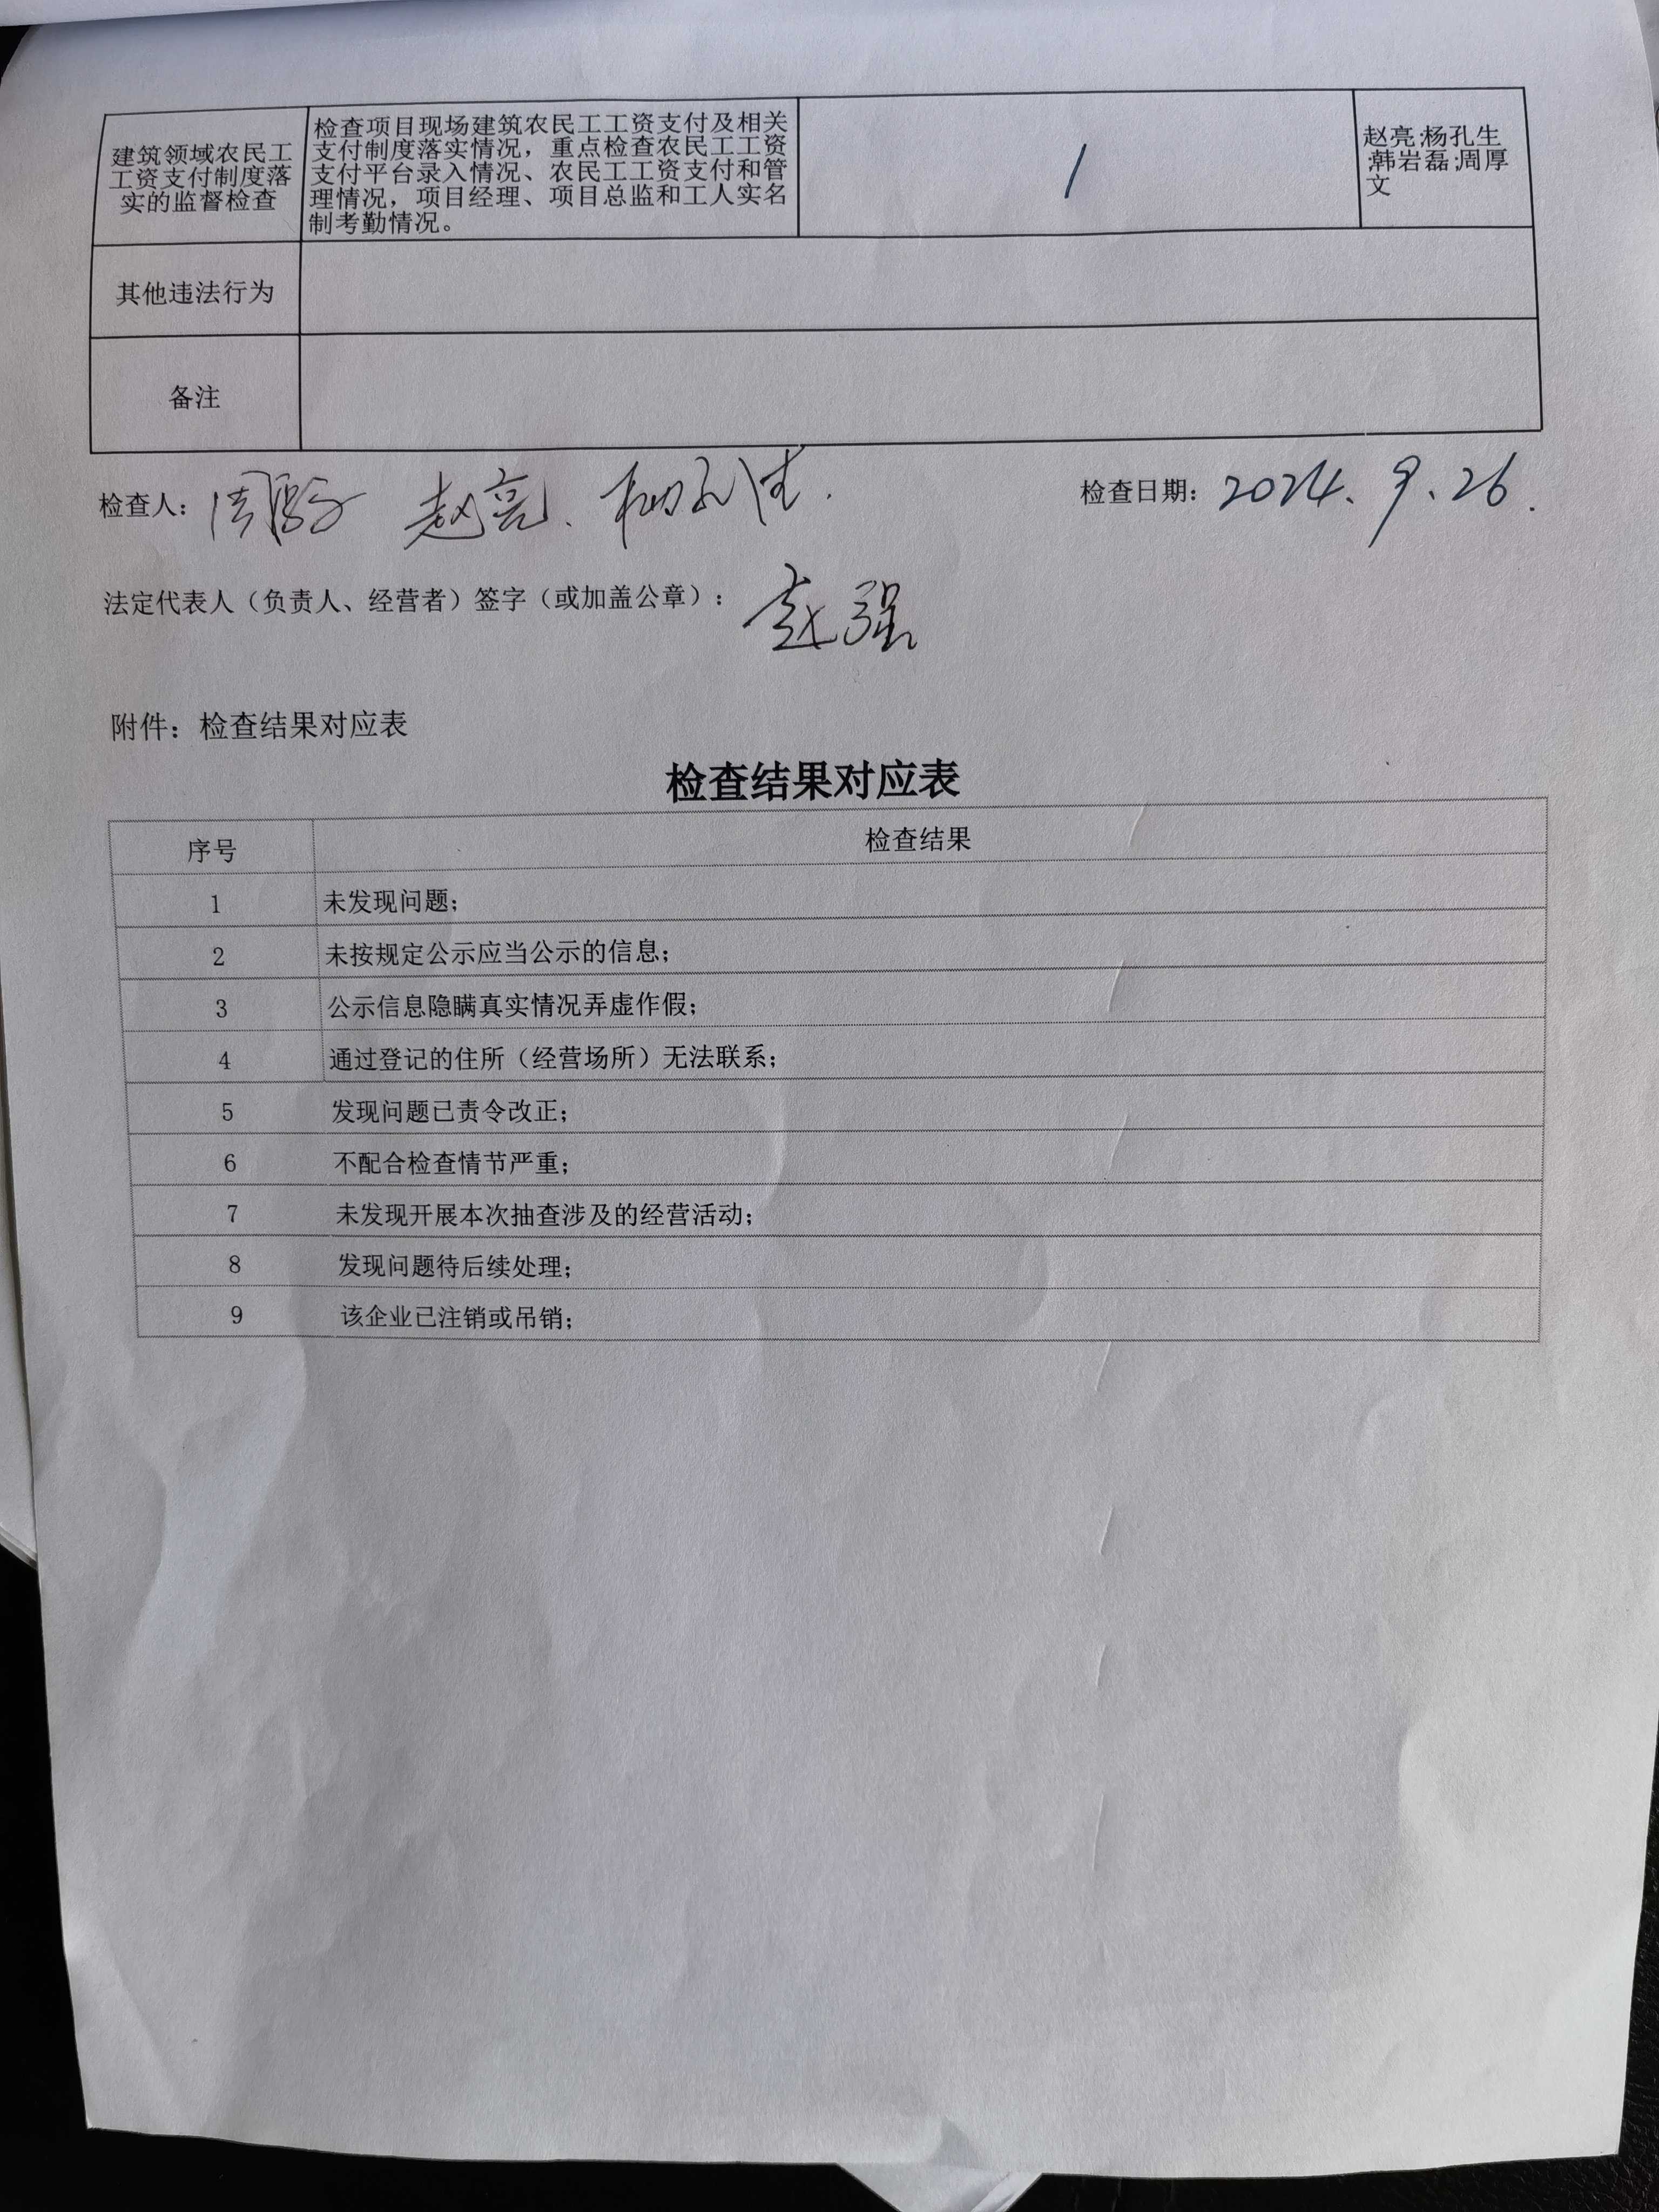 建筑领域农民工
工资支付制度落
实的监督检查
检查项目现场建筑农民工工资支付及相关
支付制度落实情况，重点检查农民工工资
支付平台录入情况、农民工工资支付和管
理情况，项目经理、项目总监和工人实名
制考勤情况。
/
赵亮;杨孔生
;韩岩磊;周厚
文
其他违法行为
备注
检查人：周厚文 赵亮. 杨孔生.
检查日期：2024.9.26.
法定代表人（负责人、经营者）签字（或加盖公章）：赵强
附件：检查结果对应表
检查结果对应表
序号 检查结果
1 未发现问题；
2 未按规定公示应当公示的信息；
3 公示信息隐瞒真实情况弄虚作假；
4 通过登记的住所（经营场所）无法联系；
5 发现问题已责令改正；
6 不配合检查情节严重；
7 未发现开展本次抽查涉及的经营活动；
8 发现问题待后续处理；
9 该企业已注销或吊销；